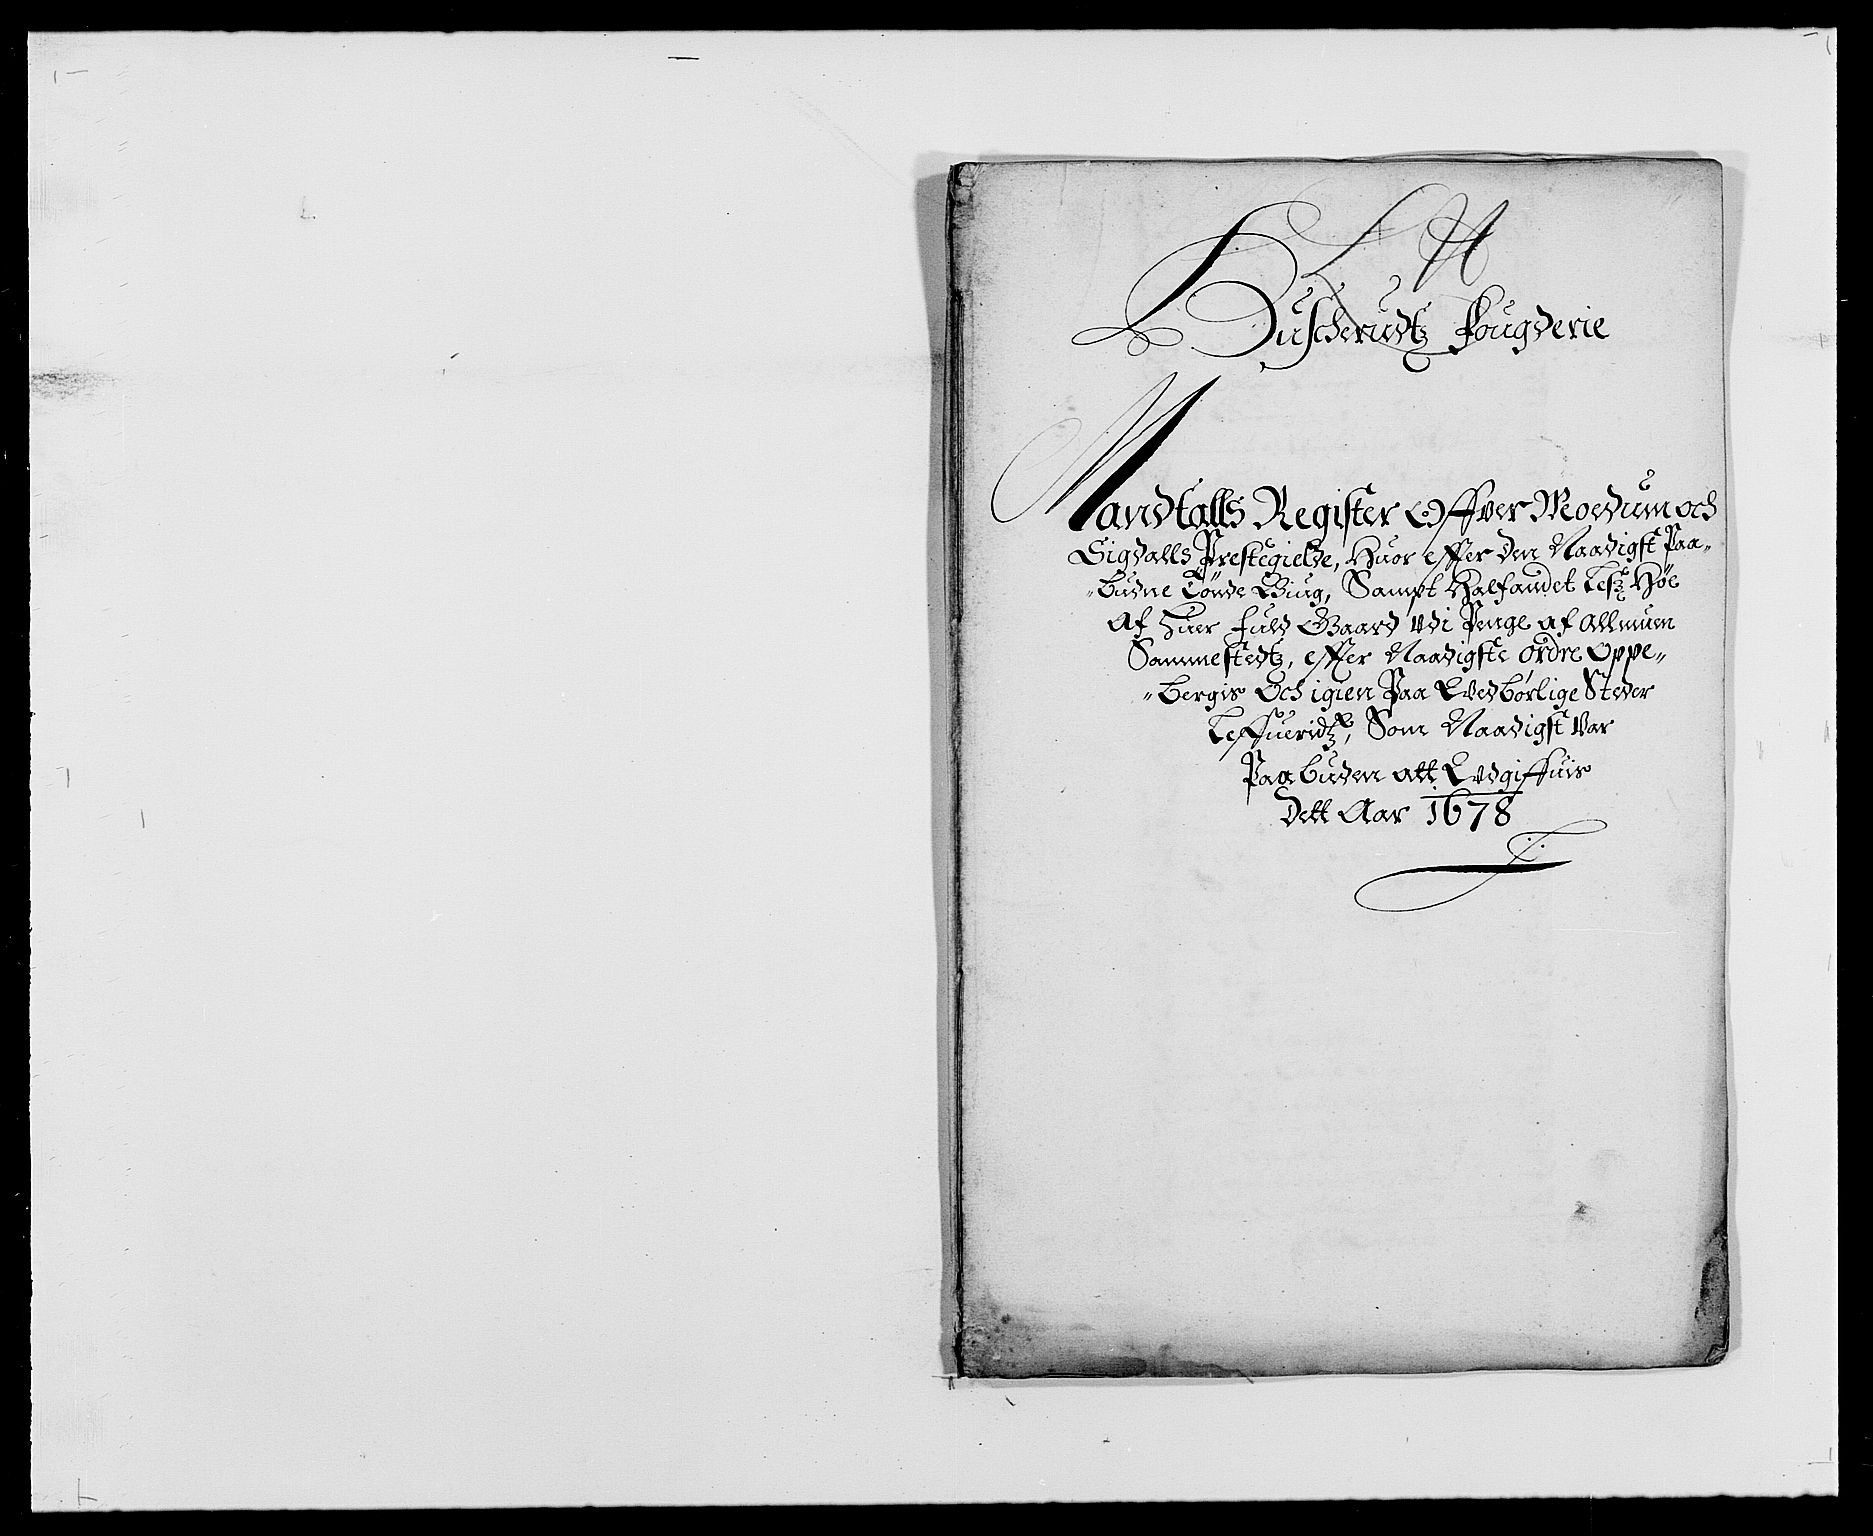 Buscherudtz Fougderie
Mandtalls Register Offver Moedum och
Sigdalls Prestegielde, Huor effter den Naadigst Paa„
„budne Tønde Biug, Sampt Halfandet Lesz Høe
af huer fuld Gaard Udi Penge af Allmuen
Sammestedtz, effter Naadigste ordre Oppe„
„bergis Och igien Paa Vedbørlige Steder
Leffueridtz, Som Naadigst Var
Paabuden att Udgiffuis
Dett Aar 1678